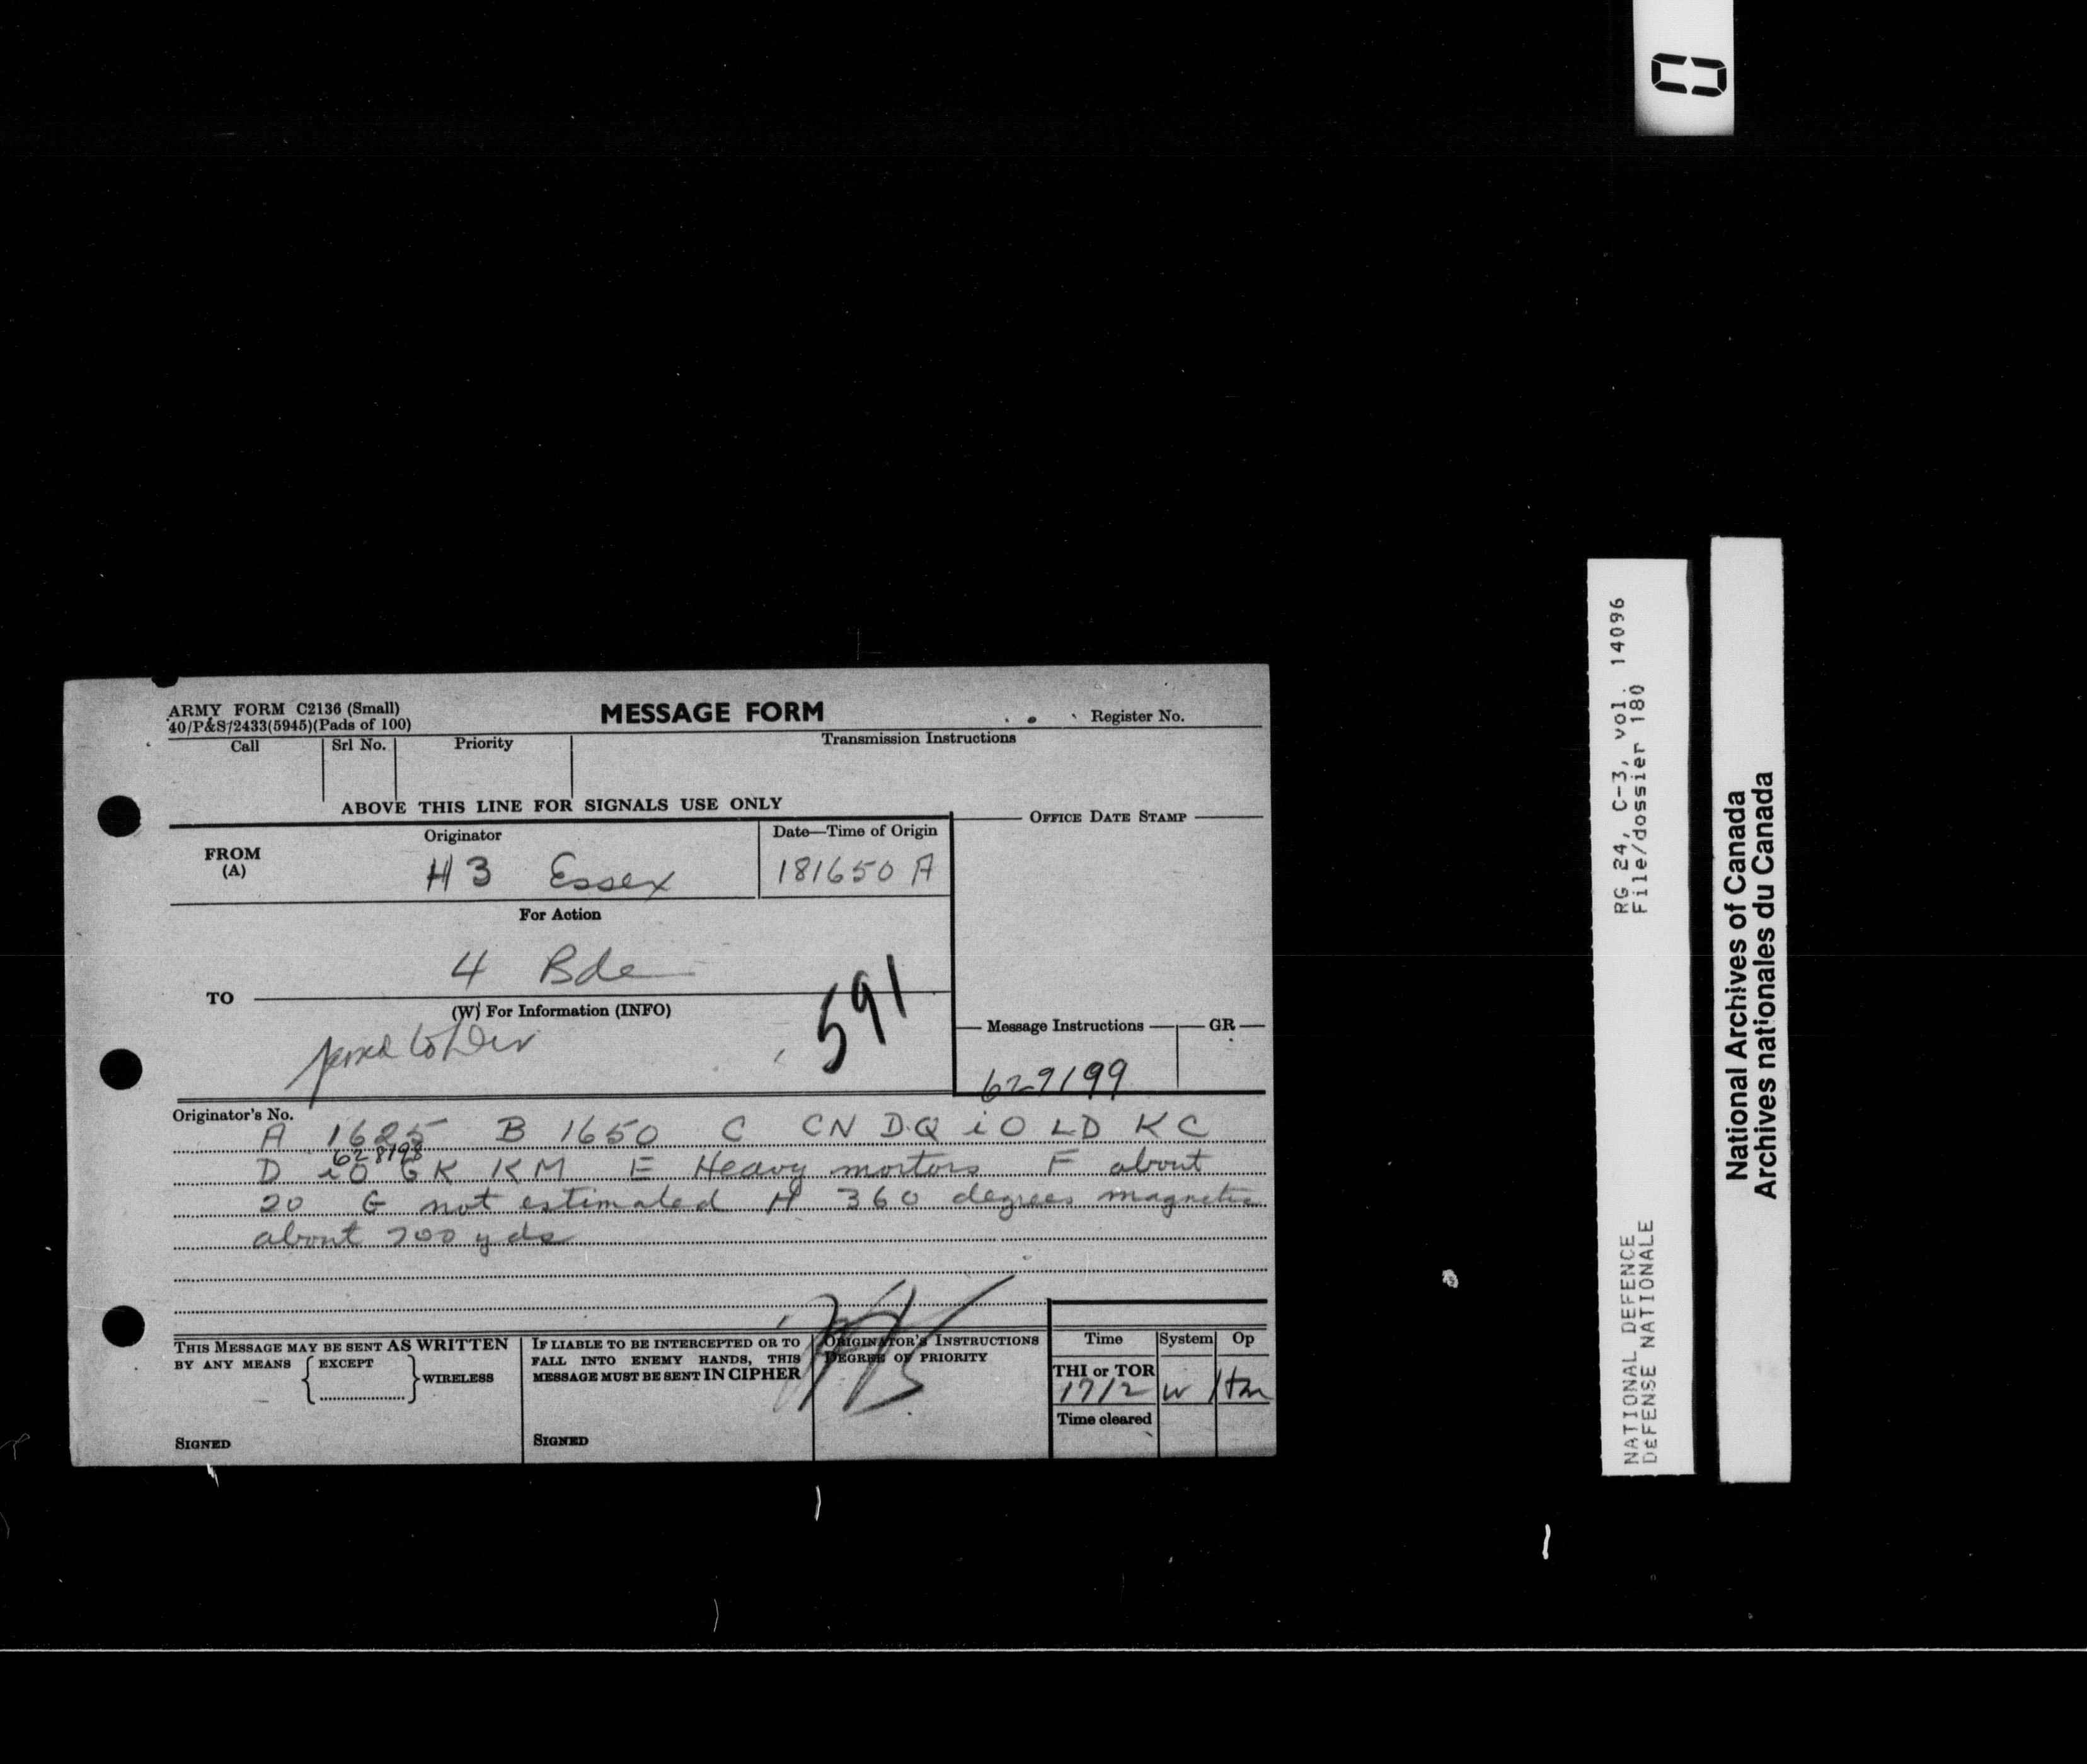 ARMY FORM C2136 (Small)
40/P&S/2433(5945)(Pads of 100)
MESSAGE FORM
Register No.
Call
Srl No.
Priority
Transmission Instructions
ABOVE THIS LINE FOR SIGNALS USE ONLY
FROM
(A)
Originator
H3 Essex
Date—Time of Origin
181650 A
OFFICE DATE STAMP
For Action
4 Bde
TO
(W) For Information (INFO)
591
Message Instructions
GR
629199
Originator's No.
A 1625 B 1650 C CN DQ iO LD KC
628198
D iO GK KM E Heavy mortors F about
20 G not estimated H 360 degrees magnetic
about 700 yds
THIS MESSAGE MAY BE SENT AS WRITTEN
BY ANY MEANS { EXCEPT } WIRELESS
SIGNED
IF LIABLE TO BE INTERCEPTED OR TO
FALL INTO ENEMY HANDS, THIS
MESSAGE MUST BE SENT IN CIPHER
SIGNED
ORIGINATOR'S INSTRUCTIONS
DEGREE OF PRIORITY
Time
System
Op
THI or TOR
1712
W
Time cleared
RG 24, C-3, vol. 14096
File/dossier 180
NATIONAL DEFENCE
DéFENSE NATIONALE
National Archives of Canada
Archives nationales du Canada